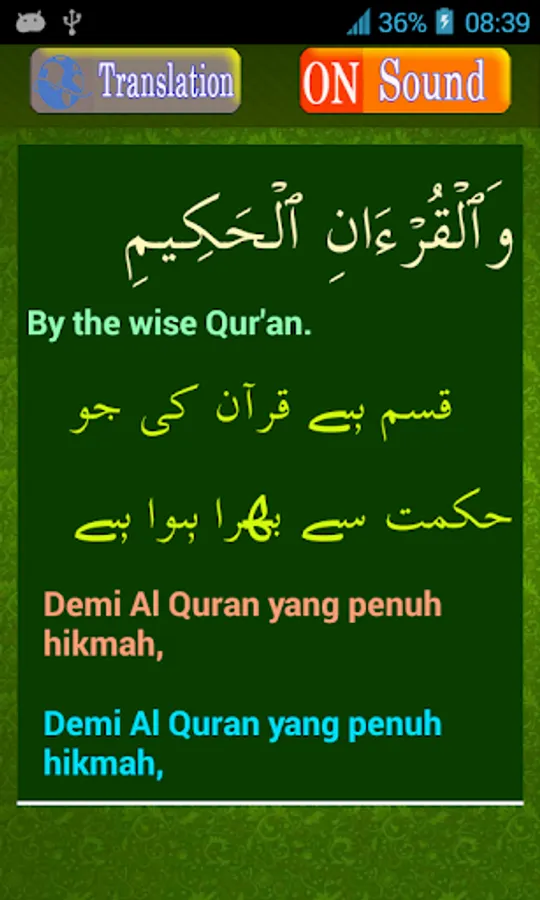 36% 08:39
Translation ON Sound
وَٱلْقُرْءَانِ ٱلْحَكِيمِ
By the wise Qur'an.
قسم ہے قرآن کی جو
حکمت سے بھرا ہوا ہے
Demi Al Quran yang penuh
hikmah,
Demi Al Quran yang penuh
hikmah,